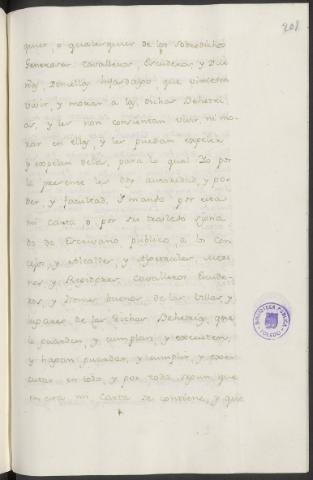 201
quier, o qualesquier de los sobredichos
Generosos Cavalleros, Escuderos, y Due
ñas Doncellas hijasdalgo que vinieren a
vivir, y morar a las dichas Behetri
as, y les non consientan vivir ni mo
rar en ellas y les puedan expeler
y expelan dellas, para lo qual Yo por
la presente les doy autoridad, y po
der, y facultad, Y mando por esta
mi Carta o por su traslado signa
do de Escrivano publico, a los Con
cejos, y Alcaldes y Merinos
y Regidores, Cavalleros Escude
ros, y Homes buenos de las Villas y
Lugares de las dichas Behetrias que
lo guarden, y cumplan, y executen,
y hagan guardar, y cumplir, y exe
cutar en todo, y por todo segun que
en esta mi Carta se contiene, y que
BIBLIOTECA PUBLICA
TOLEDO